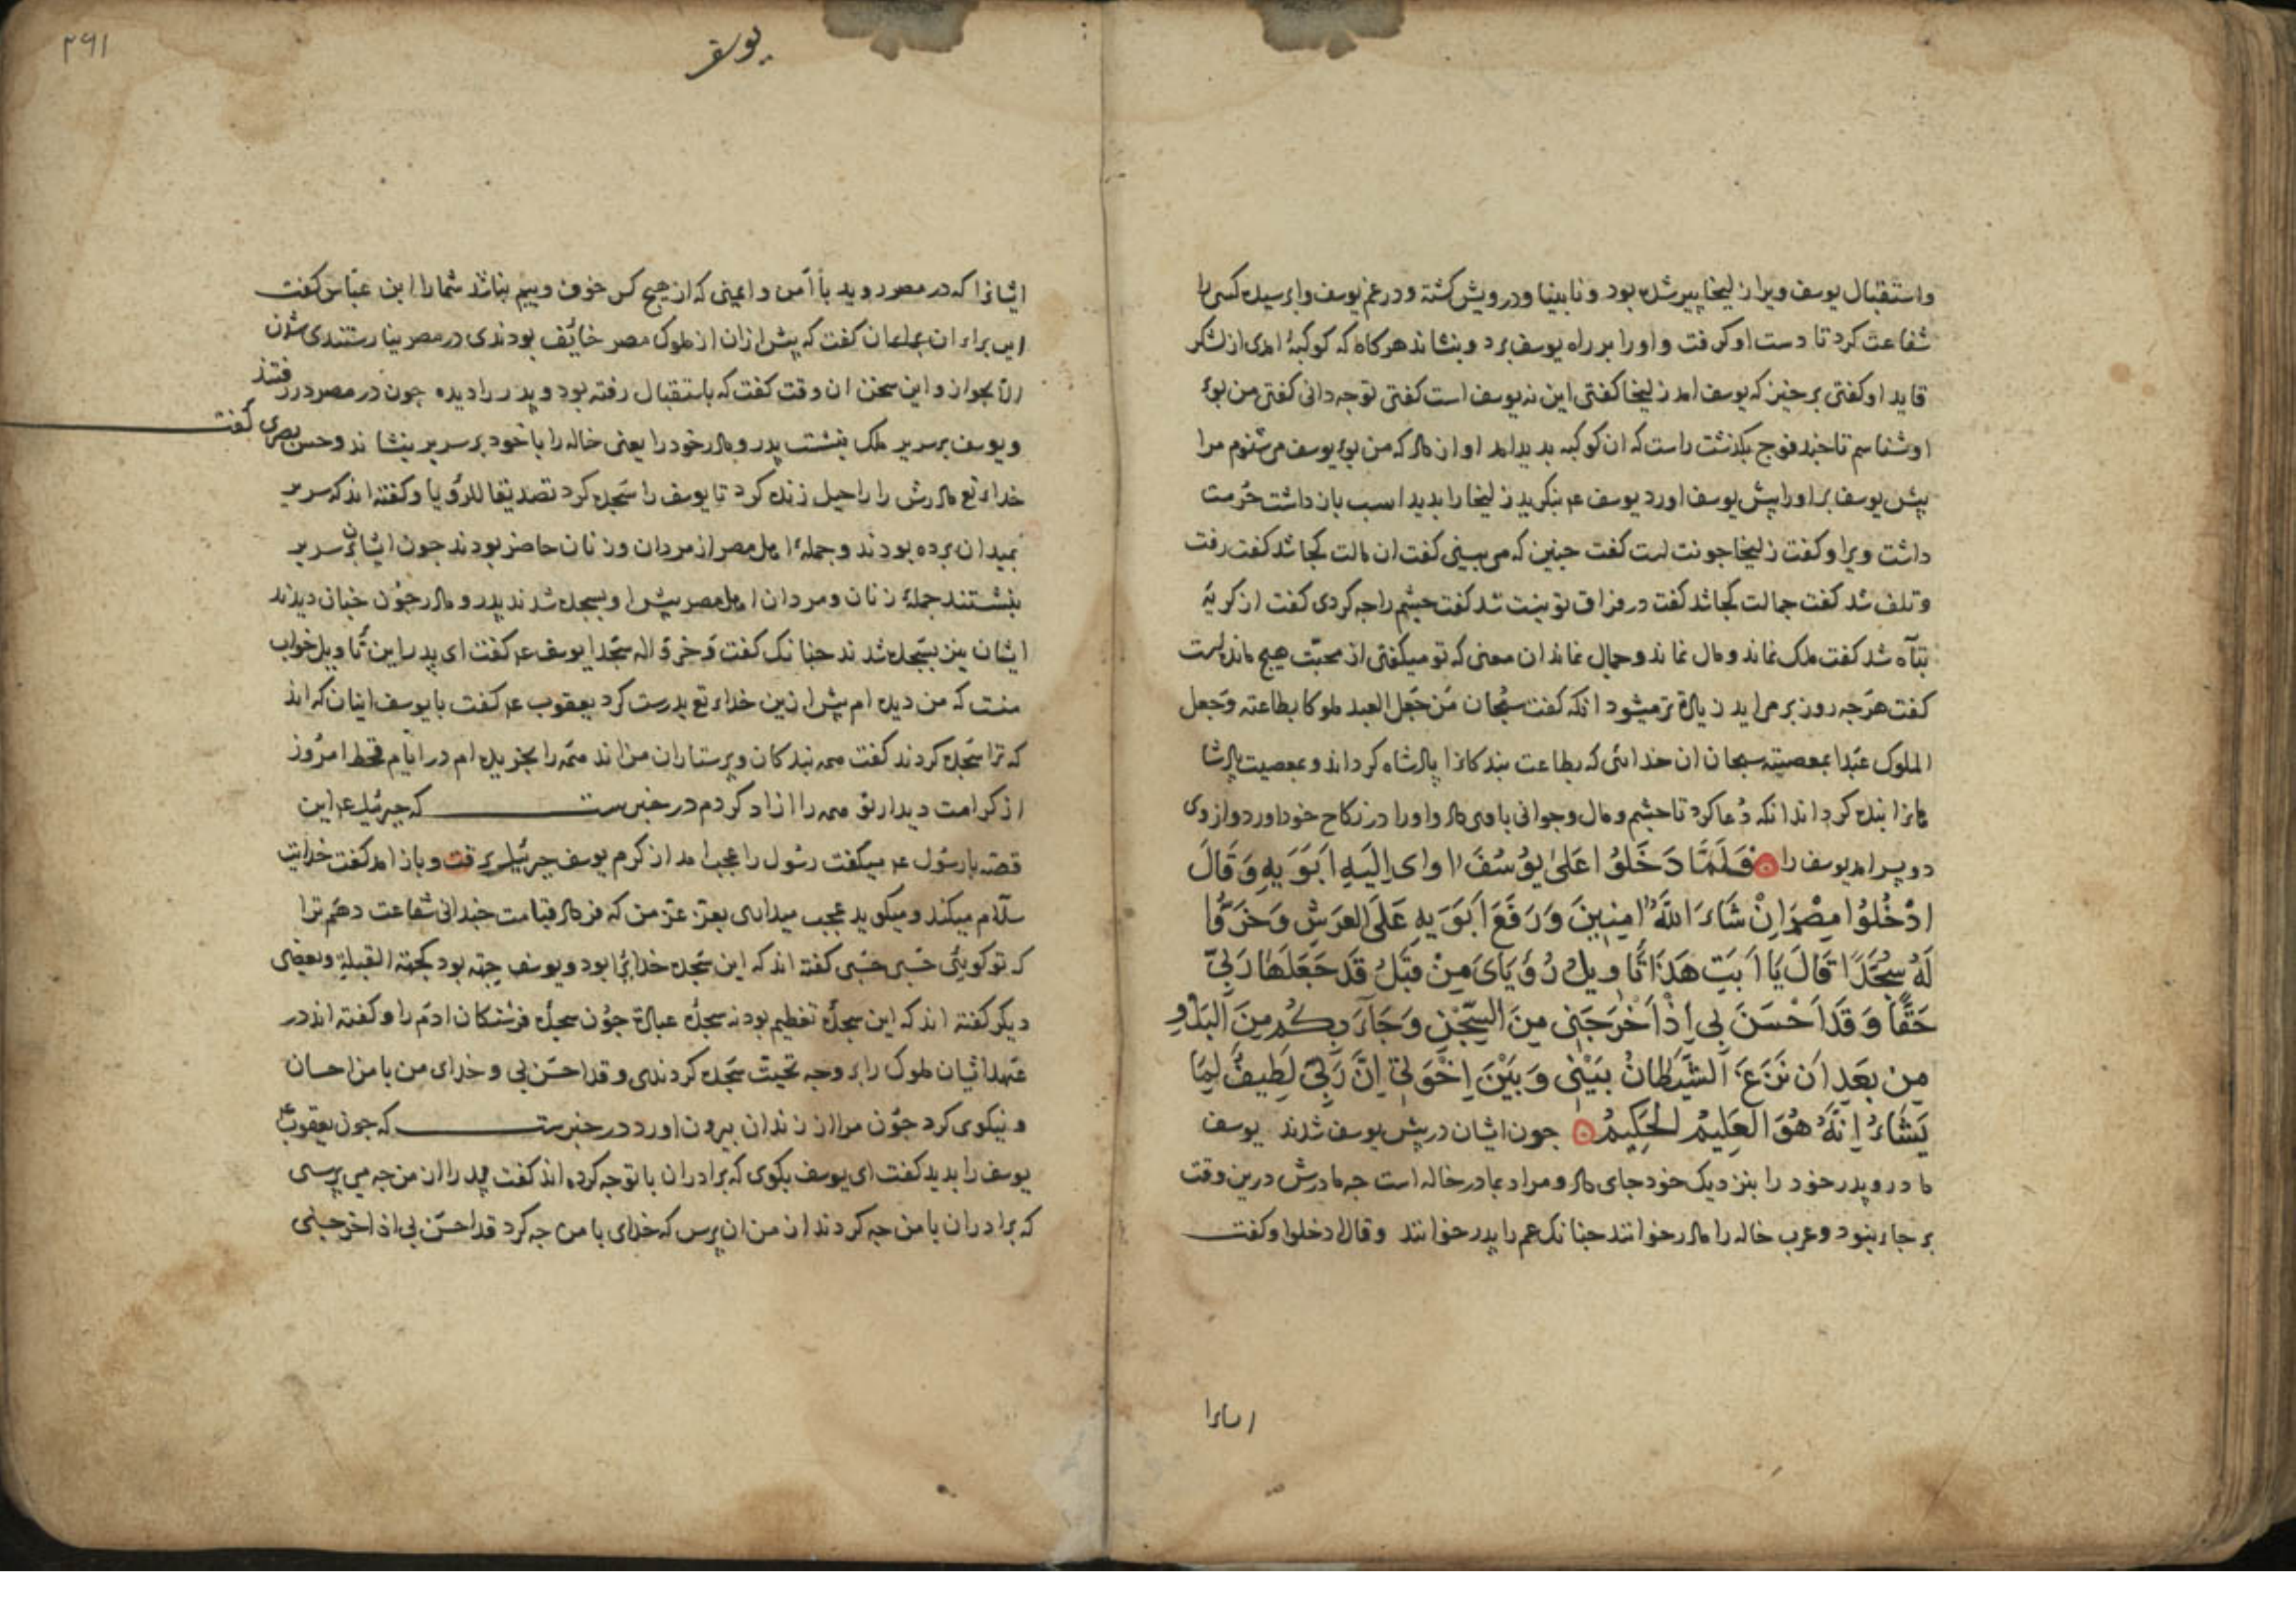 واستقبال یوسف ویرا زلیخا پیر شده بود و نابینا و درویش کشته و در غم یوسف وا برسیده کسی را
شفاعت کرد تا دست او کرفت و او را بر راه یوسف برد و بنشاند هرکاه که کوکبهٔ امدی از لشکر
قاید او کفتی برخیز که یوسف امد زلیخا کفتی این نه یوسف است کفتی تو چه دانی کفتی من بوی
او شناسم تا چند فوج بکذشت راست که ان کوکبه بدید امد او از داد که من بوی یوسف می شنوم مرا
پیش یوسف بر او را پیش یوسف اورد یوسف عم بنکرید زلیخا را بدید اسب باز داشت حرمت
داشت ویرا و کفت زلیخا جونت است کفت جنین که می بینی کفت ان مالت کجا شد کفت رفت
و تلف شد کفت جمالت کجا شد کفت در فراق تو نیست شد کفت چشم را جه کردی کفت از کریه
تباه شد کفت ملک نماند و مال نماند و جمال نماند ان معنی که تو میکفتی از محبت هیچ مانده است
کفت هرجه روز بر می اید زیادة تر میشود انکه کفت سبحان من جعل العبد ملوکا بطاعته وجعل
الملوک عبدا بمعصیته سبحان ان خدائی که بطاعت بندکانرا پادشاه کرداند و بمعصیت پادشا
هانرا بنده کرداند انکه دعا کرد تا چشم و مال و جوانی باوی داد و او را در نکاح خود اورد و از وی
دو پسر امد یوسف را فَلَمَّا دَخَلُوا عَلَىٰ یُوسُفَ اوی اِلَیهِ اَبَوَیهِ وَقَالَ
ادْخُلُوا مِصْرَ اِنْ شَاءَ اللّٰهُ امِنِینَ وَرَفَعَ اَبَوَیهِ عَلَى العَرشِ وَخَرُّوا
لَهُ سُجَّدًا قَالَ یَا اَبَتِ هَذَا تَأوِیلُ رُؤیَایَ مِنْ قَبْلُ قَد جَعَلَهَا رَبِّی
حَقًّا وَقَد اَحْسَنَ بِی اِذْ اَخْرَجَنِی مِنَ السِّجْنِ وَجَاءَ بِکُم مِنَ البَدْوِ
مِن بَعدِ اَن نَزَغَ الشَّیطَانُ بَیْنِی وَبَیْنَ اِخْوَتِی اِنَّ رَبِّی لَطِیفٌ لِمَا
یَشَاءُ اِنَّهُ هُوَ العَلِیمُ الحَکِیمُ جون ایشان در پیش یوسف شدند یوسف
مادر و پدر خود را بنزدیک خود جای داد و مراد بمادر خاله است جه مادرش درین وقت
بر جاء نبود و عرب خاله را مادر خوانند جنانک عم را پدر خوانند وقال ادخلوا و کفت
یوسف
۲۹۱
ایشانرا که در مصر روید با امن و ایمنی که از هیچ کس خوف و بیم نباشد شما را ابن عباس کفت
این برای ان کفت که پیش از ان از ملوک مصر خایف بودندی در مصر نیارستندی شدن
الا بجواز و این سخن ان وقت کفت که باستقبال رفته بود و پدر را دیده جون در مصر در رفتند
و یوسف بر سریر ملک بنشست پدر و مادر خود را یعنی خاله را با خود بر سریر بنشاند و حسن بصری کفت
خداء تع مادرش را راحیل زنده کرد تا یوسف را سجده کرد تصدیقا للرؤیا و کفته اند که سریر
بمیدان برده بودند و جملهٔ اهل مصر از مردان و زنان حاضر بودند جون ایشان بر سریر
بنشستند جملهٔ زنان و مردان اهل مصر پیش او بسجده شدند پدر و مادر جون جنان دیدند
ایشان نیز بسجده شدند جنانک کفت وخروا له سجدا یوسف عم کفت ای پدر این تاویل خواب
منست که من دیده ام پیش ازین خداء تع بدرست کرد یعقوب عم کفت یا یوسف اینان که اند
که ترا سجده کردند کفت همه بندکان و پرستاران من اند همه را بخریده ام در ایام قحط امروز
از کرامت دیدار تو همه را ازاد کردم در خبرست که جبرئیل عم این
قصه با رسول عم میکفت رسول را عجب امد از کرم یوسف جبرئیل برفت و باز امد کفت خدایت
سلام میکند و میکوید عجب میداری بعز عز من که فرداء قیامت جندانی شفاعت دهم ترا
که تو کویئی حسبی حسبی کفته اند که این سجده خدایرا بود و یوسف جهة بود کجهة القبلة و بعضی
دیکر کفته اند که این سجدهٔ تعظیم بود نه سجدهٔ عبادة جون سجدهٔ فرشتکان ادم را و کفته اند در
عهد ایشان ملوک را بر وجه تحیت سجده کردندی وقد احسن بی و خدای من با من احسان
و نیکوی کرد جون مرا از زندان بیرون اورد در خبرست که جون یعقوب عم
یوسف را بدید کفت ای یوسف بکوی که برادران با تو جه کرده اند کفت پدر را از من جه می پرسی
که برادران با من جه کردند از من ان پرس که خدای با من جه کرد قد احسن بی اذ اخرجنی